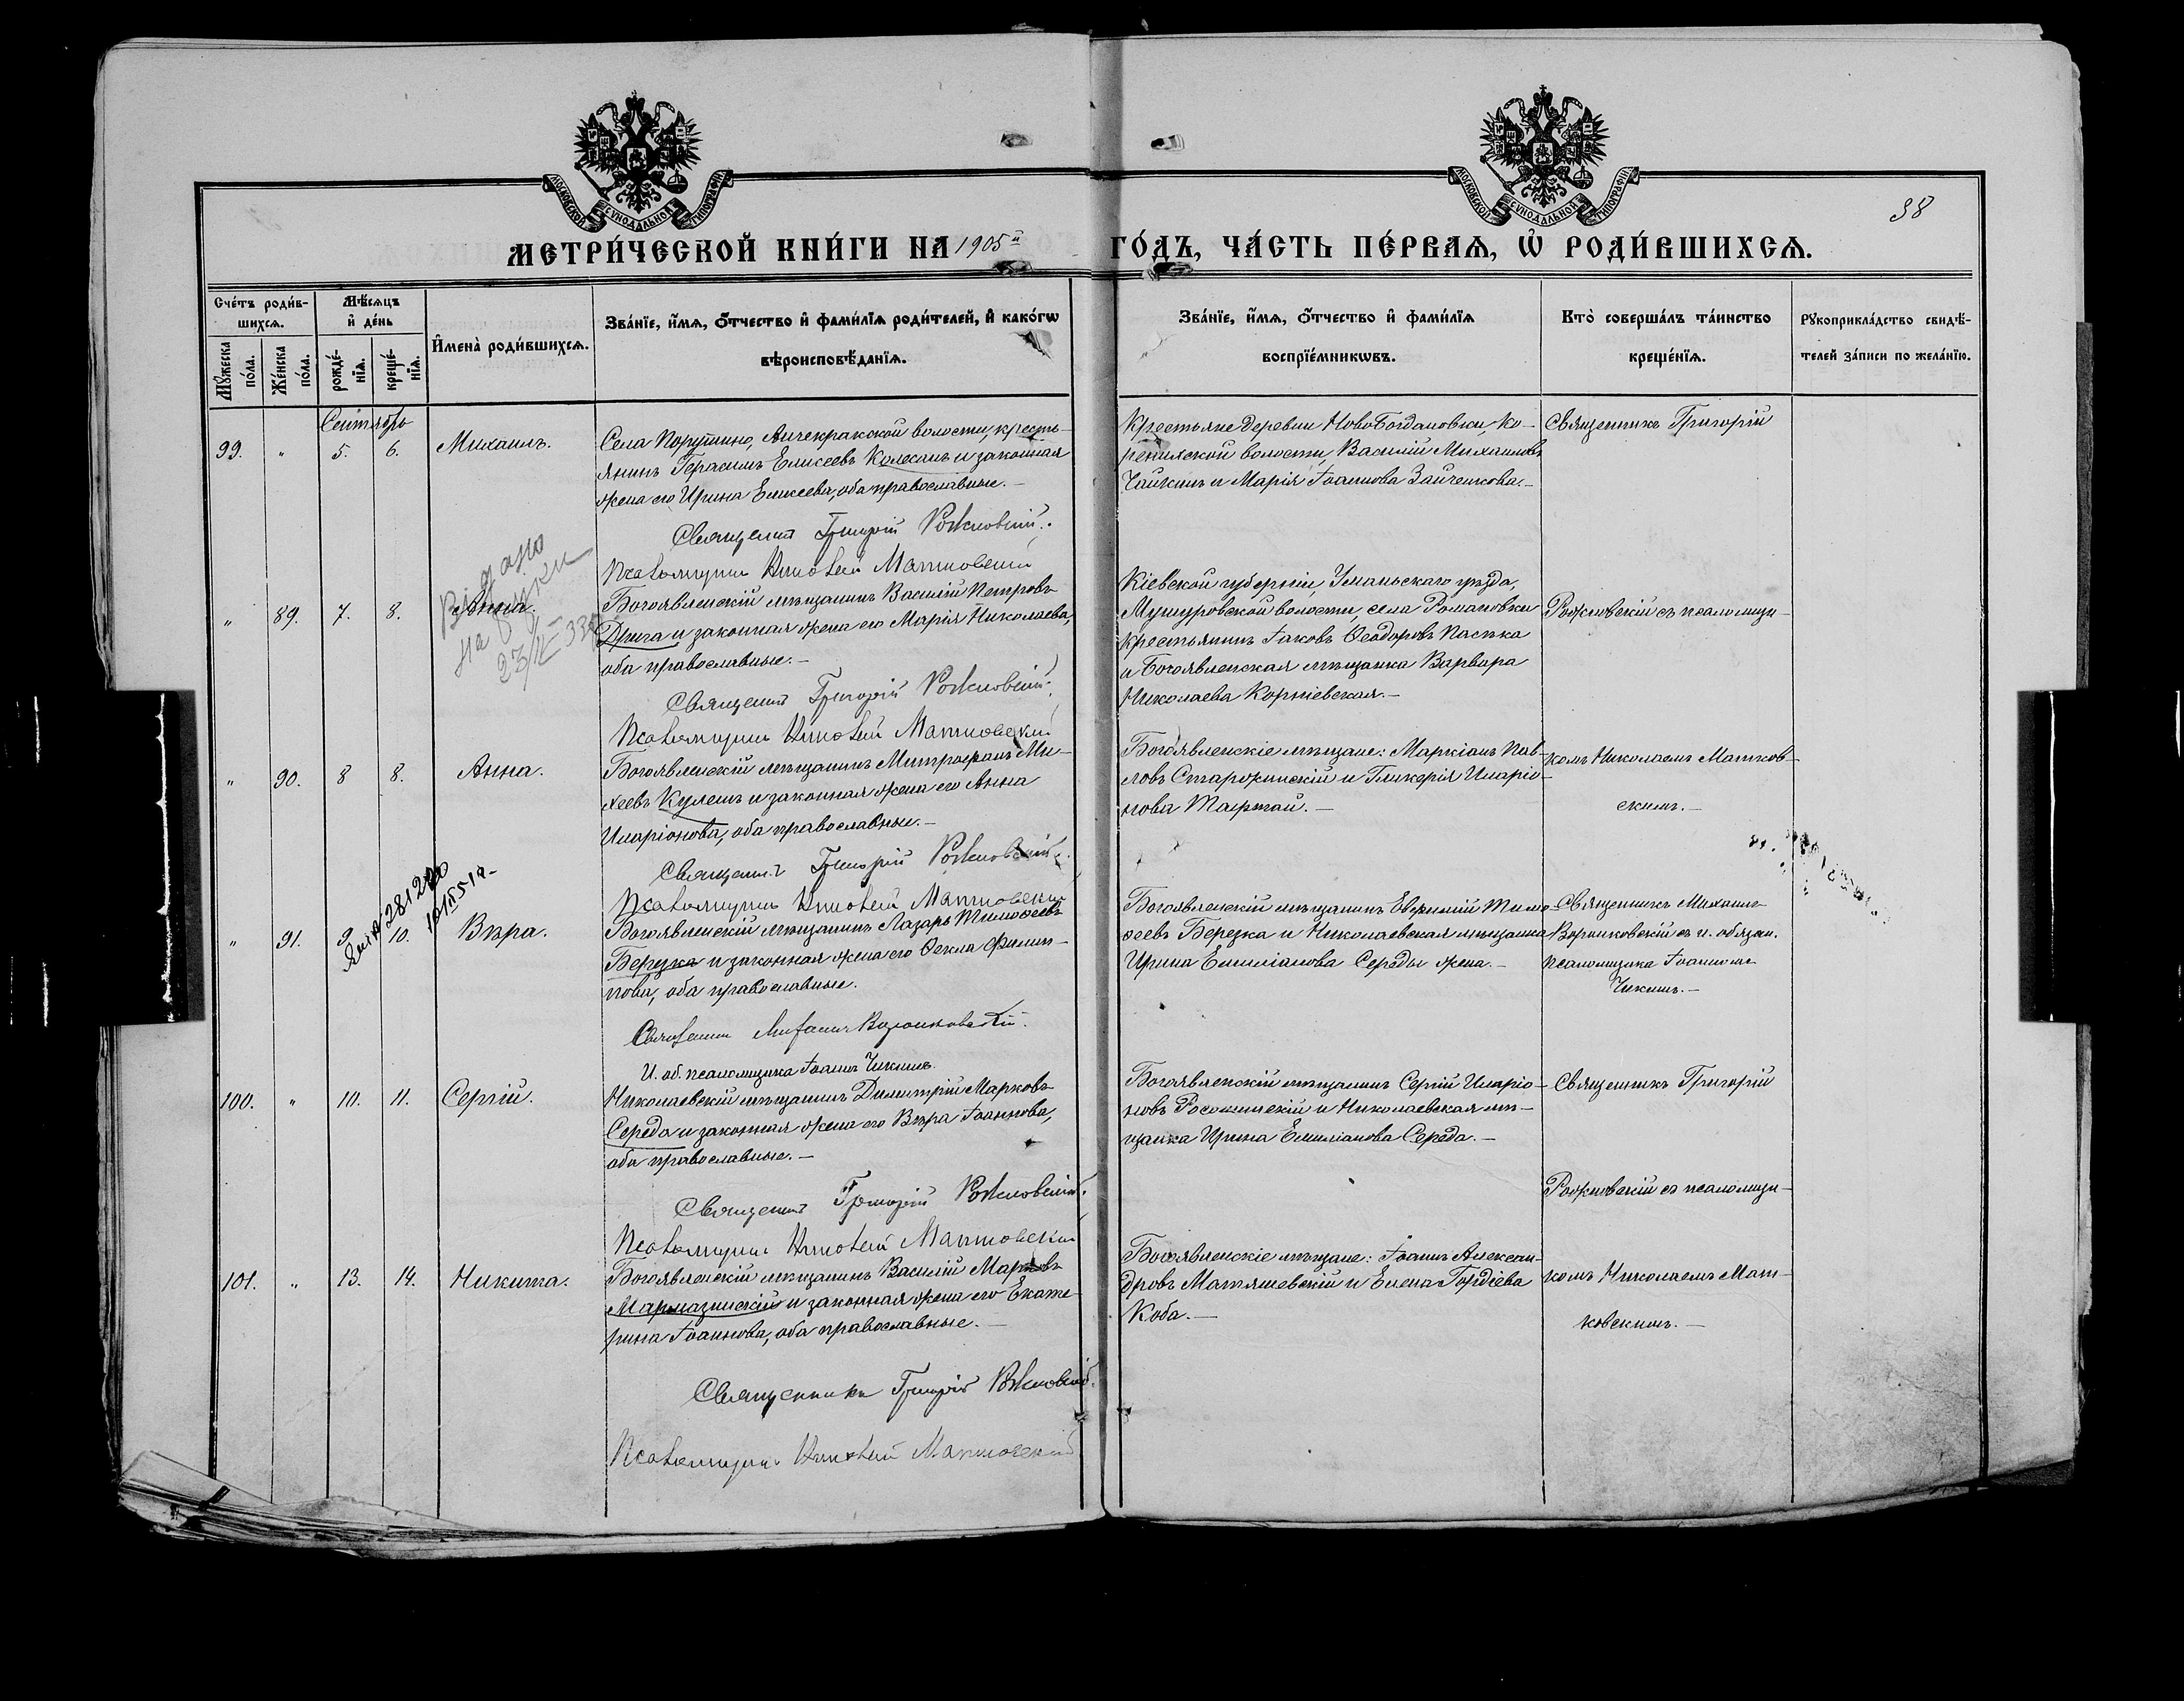 МОСКОВСКОЙ СѴНОДАЛЬНОЙ ТИПОГРАФІИ
МОСКОВСКОЙ СѴНОДАЛЬНОЙ ТИПОГРАФІИ
38
МЕТРИ́ЧЕСКОЙ КНИ́ГИ НА 1905й ГО́ДЪ, ЧА́СТЬ ПЕ́РВАѦ, Ѡ҆ РОДИ́ВШИХСѦ.
Сче́тъ роди́в-
шихсѧ.
Мꙋ́жеска по́ла.
Же́нска по́ла.
Мѣ́сѧцъ
и҆ де́нь
рожде́-
нїѧ.
креще́-
нїѧ.
И҆мена̀ роди́вшихсѧ.
Зва́нїе, и҆́мѧ, ѻ҆́тчество и҆ фами́лїѧ роди́телей, и҆ како́гѡ
вѣроисповѣ́данїѧ.
Зва́нїе, и҆́мѧ, ѻ҆́тчество и҆ фами́лїѧ
воспрїе́мникѡвъ.
Кто̀ соверша́лъ та́инство
креще́нїѧ.
Рꙋкоприкла́дство свидѣ́-
телей за́писи по жела́нїю.
Сентябрь
99. " 5. 6. Михаилъ.
Села Порутино, Анчекракской волости, кресть-
янинъ Герасимъ Елисеевъ Колесанъ и законная
жена его Ирина Елисеева, оба православные. —
Священникъ Григорій Рожновскій.
Псаломщикъ Николай Матковскій
Крестьяне деревни НовоБогдановки, Ко-
ренихской волости, Василій Михаиловъ
Чайкинъ и Марія Іоаннова Зайченкова. —
Священникъ Григорій
Видано
на руки
23/IX-33
" 89. 7. 8. Анна.
Богоявленскій мѣщанинъ Василій Петровъ
Дрига и законная жена его Марія Николаева,
оба православные. —
Священникъ Григорій Рожновскій.
Псаломщикъ Николай Матковскій
Кіевской губерніи, Уманьскаго уѣзда,
Мушуровской волости, села Романовки
крестьянинъ Іаковъ Ѳеодоровъ Пасѣка
и Богоявленская мѣщанка Варвара
Николаева Корніевская. —
Рожновскій съ псаломщи-
" 90. 8 8. Анна.
Богоявленскій мѣщанинъ Митрофанъ Ми-
хеевъ Кулешъ и законная жена его Анна
Иларіонова, оба православные. —
Священникъ Григорій Рожновскій.
Псаломщикъ Николай Матковскій
Богоявленскіе мѣщане: Маркіанъ Пав-
ловъ Старожинскій и Гликерія Иларіо-
нова Тафтай. —
комъ Николаемъ Матков-
скимъ. —
281240
10/II 51 г.
" 91. 9. 10. Вѣра.
Богоявленскій мѣщанинъ Лазарь Тимоѳеевъ
Березка и законная жена его Ѳекла Филип-
пова, оба православные.
Священникъ Михаилъ Воронковскій.
И. об. псаломщика Іоаннъ Чикинъ.
Богоявленскій мѣщанинъ Евфимій Тимо-
ѳеевъ Березка и Николаевская мѣщанка
Ирина Емиліанова Середы жена. —
Священникъ Михаилъ
Воронковскій съ и. обязан.
псаломщика Іоанномъ
Чикинъ. —
100. " 10. 11. Сергій.
Николаевскій мѣщанинъ Димитрій Марковъ
Середа и законная жена его Вѣра Іоаннова,
оба православные. —
Священникъ Григорій Рожновскій.
Псаломщикъ Николай Матковскій
Богоявленскій мѣщанинъ Сергій Иларіо-
новъ Росошинскій и Николаевская мѣ-
щанка Ирина Емиліанова Середа. —
Священникъ Григорій
Рожновскій съ псаломщи-
101. " 13. 14. Никита.
Богоявленскій мѣщанинъ Василій Марковъ
Мармазинскій и законная жена его Екате-
рина Іоаннова, оба православные. —
Священникъ Григорій Рожновскій.
Псаломщикъ Николай Матковскій
Богоявленскіе мѣщане: Іоаннъ Алексан-
дровъ Матяшевскій и Елена Гордіева
Коба. —
комъ Николаемъ Мат-
ковскимъ. —